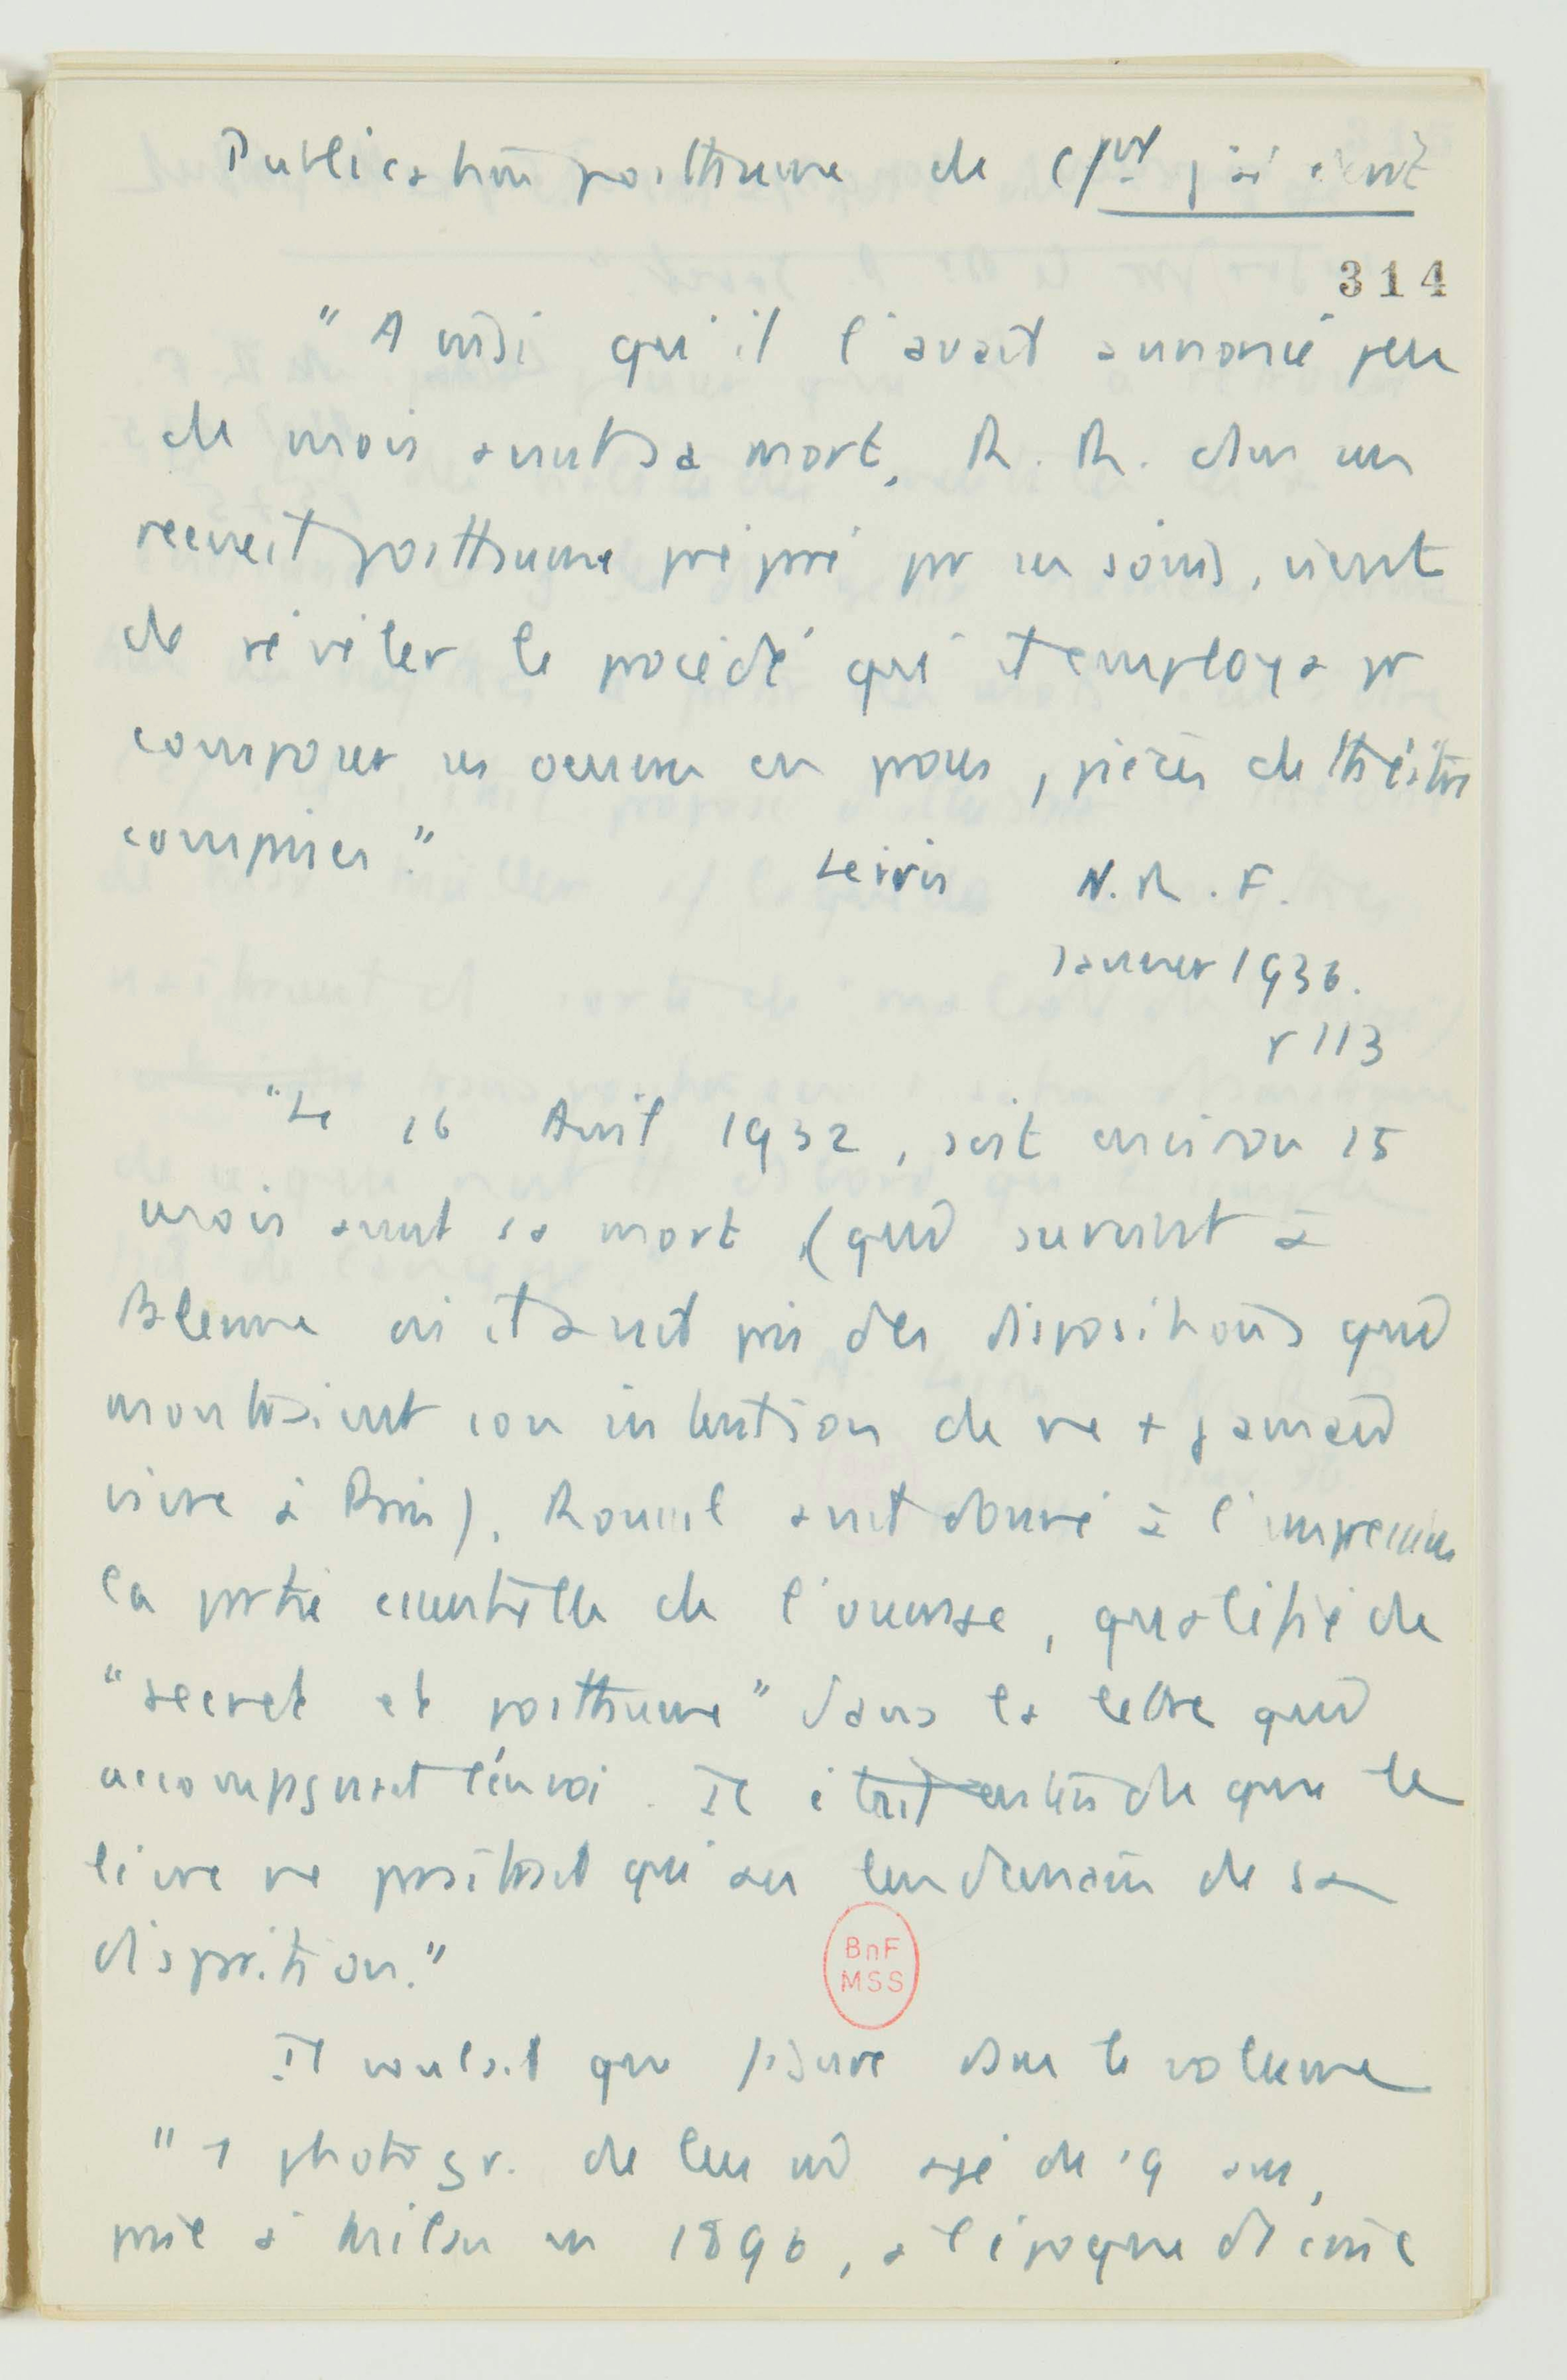 Publication posthume de C/mt j'ai écrit
314
"Ainsi qu'il l'avait annoncé peu
de mois avant sa mort, R. R. dans un
recueil posthume préparé par ses soins, vient
de révéler le procédé qu'il employa pr
composer ses oeuvres en prose, pièces de théâtre
comprises."
Leiris N. R. F.
Janvier 1936.
p 113
"Le 16 Avril 1932, soit environ 15
mois avant sa mort (qui survint à
Palerme où il avait pris des dispositions qui
montraient son intention de ne + jamais
vivre à Paris), Roussel avait donné à l'impression
la partie essentielle de l'ouvrage, qualifié de
"secret et posthume" dans la lettre qui
accompagnait l'envoi. Il était entendu que le
livre ne paraîtrait qu'au lendemain de sa
disparition."
Il voulait que figure dans le volume
"1 photogr. de lui âgé de 19 ans,
prise à Milan en 1896, à l'époque